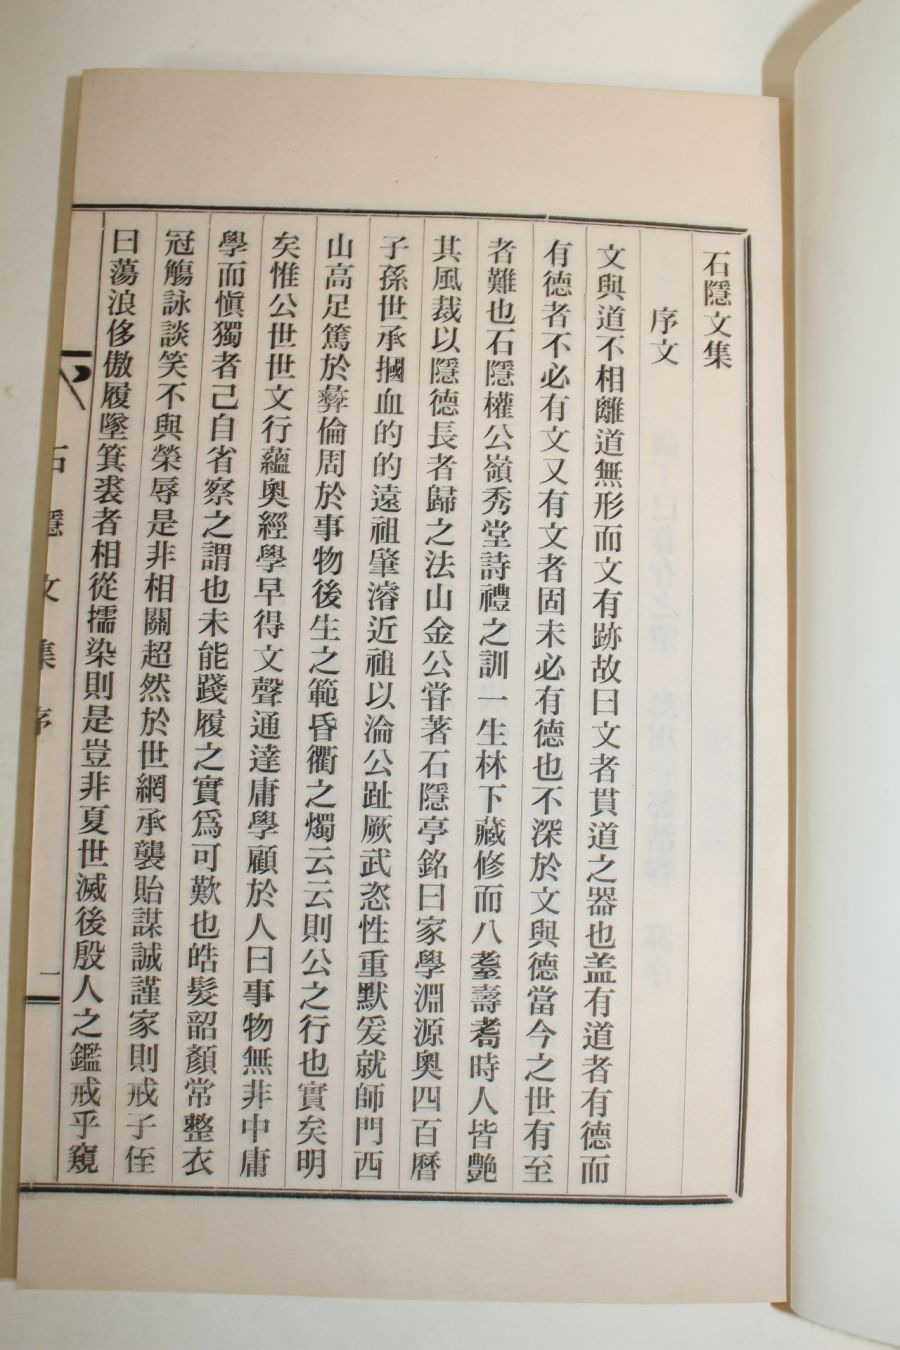 石隱文集
序文
文與道不相離道無形而文有跡故曰文者貫道之器也盖有道者有德而
有德者不必有文又有文者固未必有德也不深於文與德當今之世有至
者難也石隱權公嶺秀堂詩禮之訓一生林下藏修而八耋壽耈時人皆艶
其風裁以隱德長者歸之法山金公甞著石隱亭銘曰家學淵源奥四百曆
子孫世承摑血的的遠祖肇濬近祖以淪公趾厥武恣性重默爰就師門西
山高足篤於彜倫周於事物後生之範昏衢之燭云云則公之行也實矣明
矣惟公世世文行蘊奥經學早得文聲通達庸學顧於人曰事物無非中庸
學而愼獨者己自省察之謂也未能踐履之實爲可歎也皓髮韶顏常整衣
冠觴詠談笑不與榮辱是非相關超然於世網承襲貽謀誠謹家則戒子侄
曰蕩浪侈傲履墜箕裘者相從擩染則是豈非夏世滅後殷人之鑑戒乎窺
石隱文集 序
一